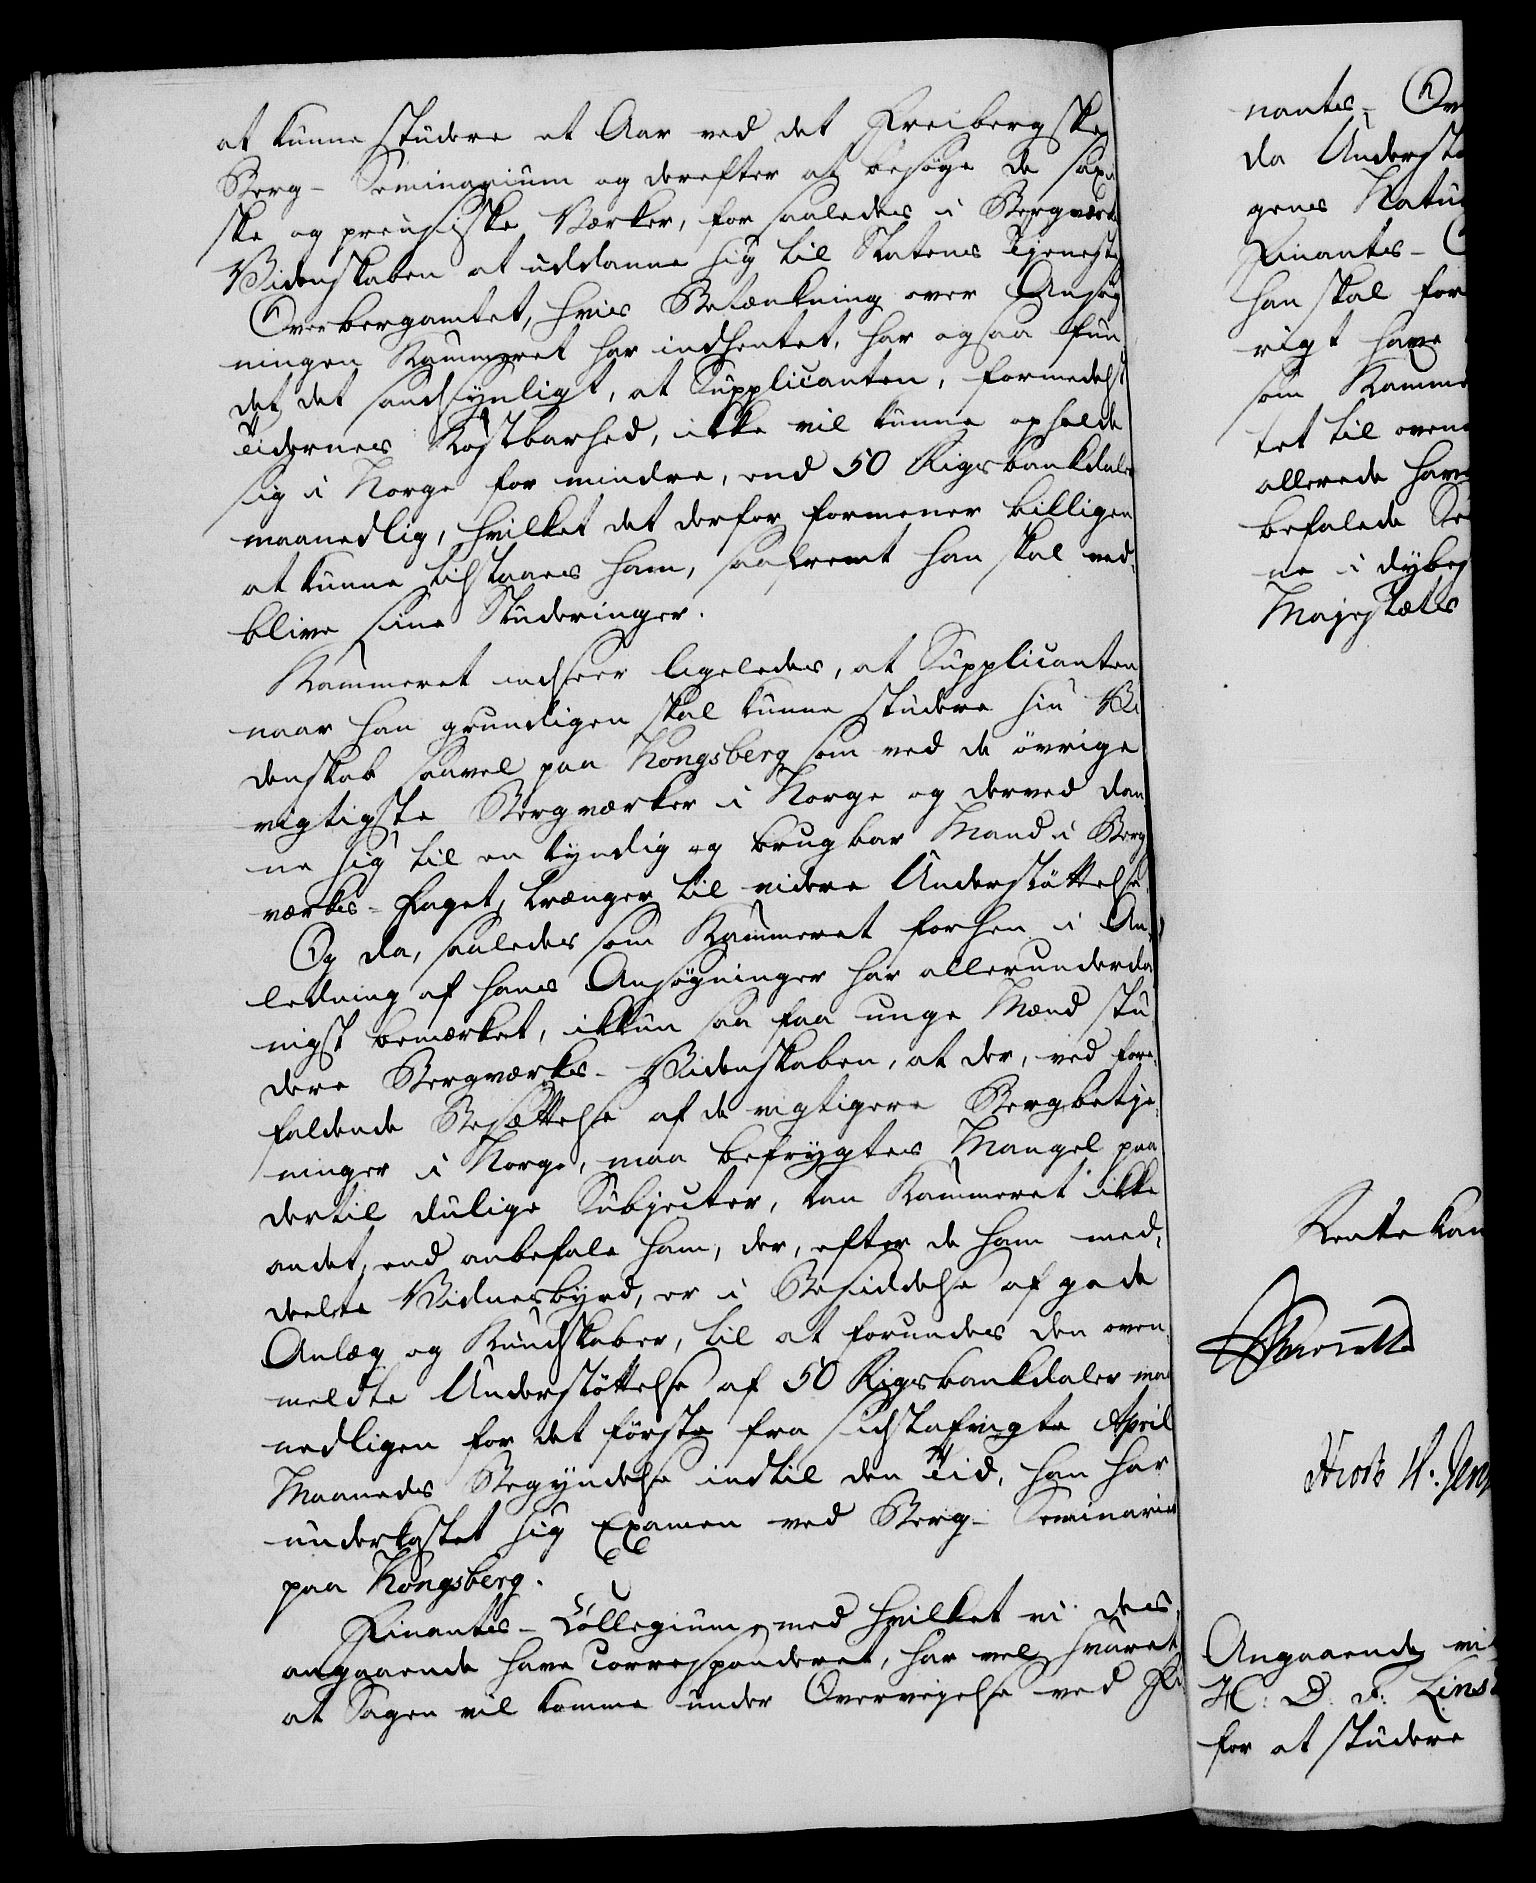 at kunne studere et Aar ved det Freibergske
Berg- Seminarium og derefter at besøge de saxi
ske og preusiske Værker, for saaledes i Bergværks
Videnskaben at uddanne sig til Statens Tjeneste
Overbergamtet, hvis Betænkning over Ansøg
ningen Kammeret har indhentet, har ogsaa fun
det det sandsynligt, at Supplicanten, formedelst
Tidernes Kostbarhed, ikke vil kunne opholde
sig i Norge for mindre, end 50 Rigsbankdaler
maanedlig, hvilket det derfor formener billigen
at kunne tilstaaes ham, saafremt han skal ved-
blive sine Studeringer.
Kammeret indseer ligeledes, at Supplicanten
naar han grundigen skal kunne studere hiin Vi
denskab saavel paa Kongsberg som ved de övrige
vigtigste Bergværker i Norge og derved dan
ne sig til en kyndig og brugbar Mand i Berg
værks-Faget, trænger til videre Understöttelse.
Og da, saaledes som Kammeret forhen i An-
ledning af hans Ansøgninger har allerunderda
nigst bemærket, ikkun saa faa unge Mænd stu
dere Bergværks- Videnskaben, at der, ved fore-
faldende Besættelse af de vigtigere Bergbetje-
ninger i Norge, maa befrygtes Mangel paa
dertil dulige Subjecter, kan Kammeret ikke
andet, end anbefale ham, der, efter de ham med-
deelte Vidnesbyrd, er i Besiddelse af gode
Anlæg og Kundskaber, til at forundes den oven
meldte Understöttelse af 50 Rigsbankdaler maa
nedligen for det förste fra sidstafvigte April
Maaneds Begyndelse indtil den Tid, han har
underkastet sig Examen ved Berg- Seminariet
paa Kongsberg.
Finants- Collegium, med hvilket vi des-
angaaende have correponderet, har vel svaret
at Sagen vil komme under Overveielse ved Fi
nants- Ov
da Understö
genes Natu
Finants- C
han skal for
rigt have
som Kamme
tet til oven
allerede have
befalede
ne i dybes
Majestæts
Rentekam
Angaaende
H: D: F: Lins
for at studere